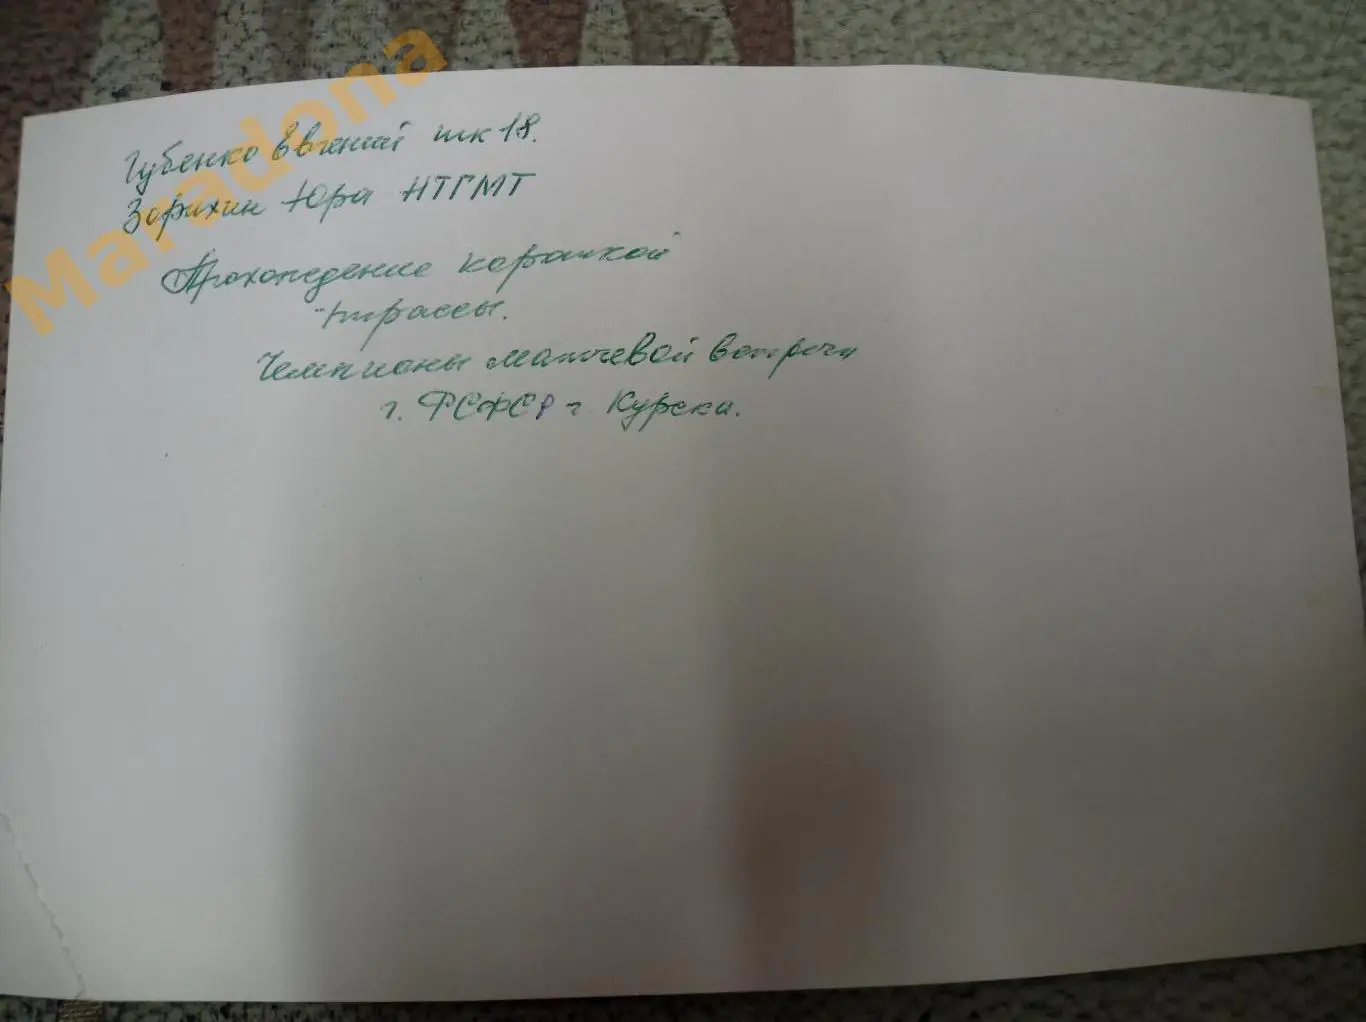 Губенко Евгений шк 18.
Зорихин Юра НТГМТ
Прохождение короткой
трассы.
Чемпионы матчевой встречи
г. РСФСР г Курска.
Maradona